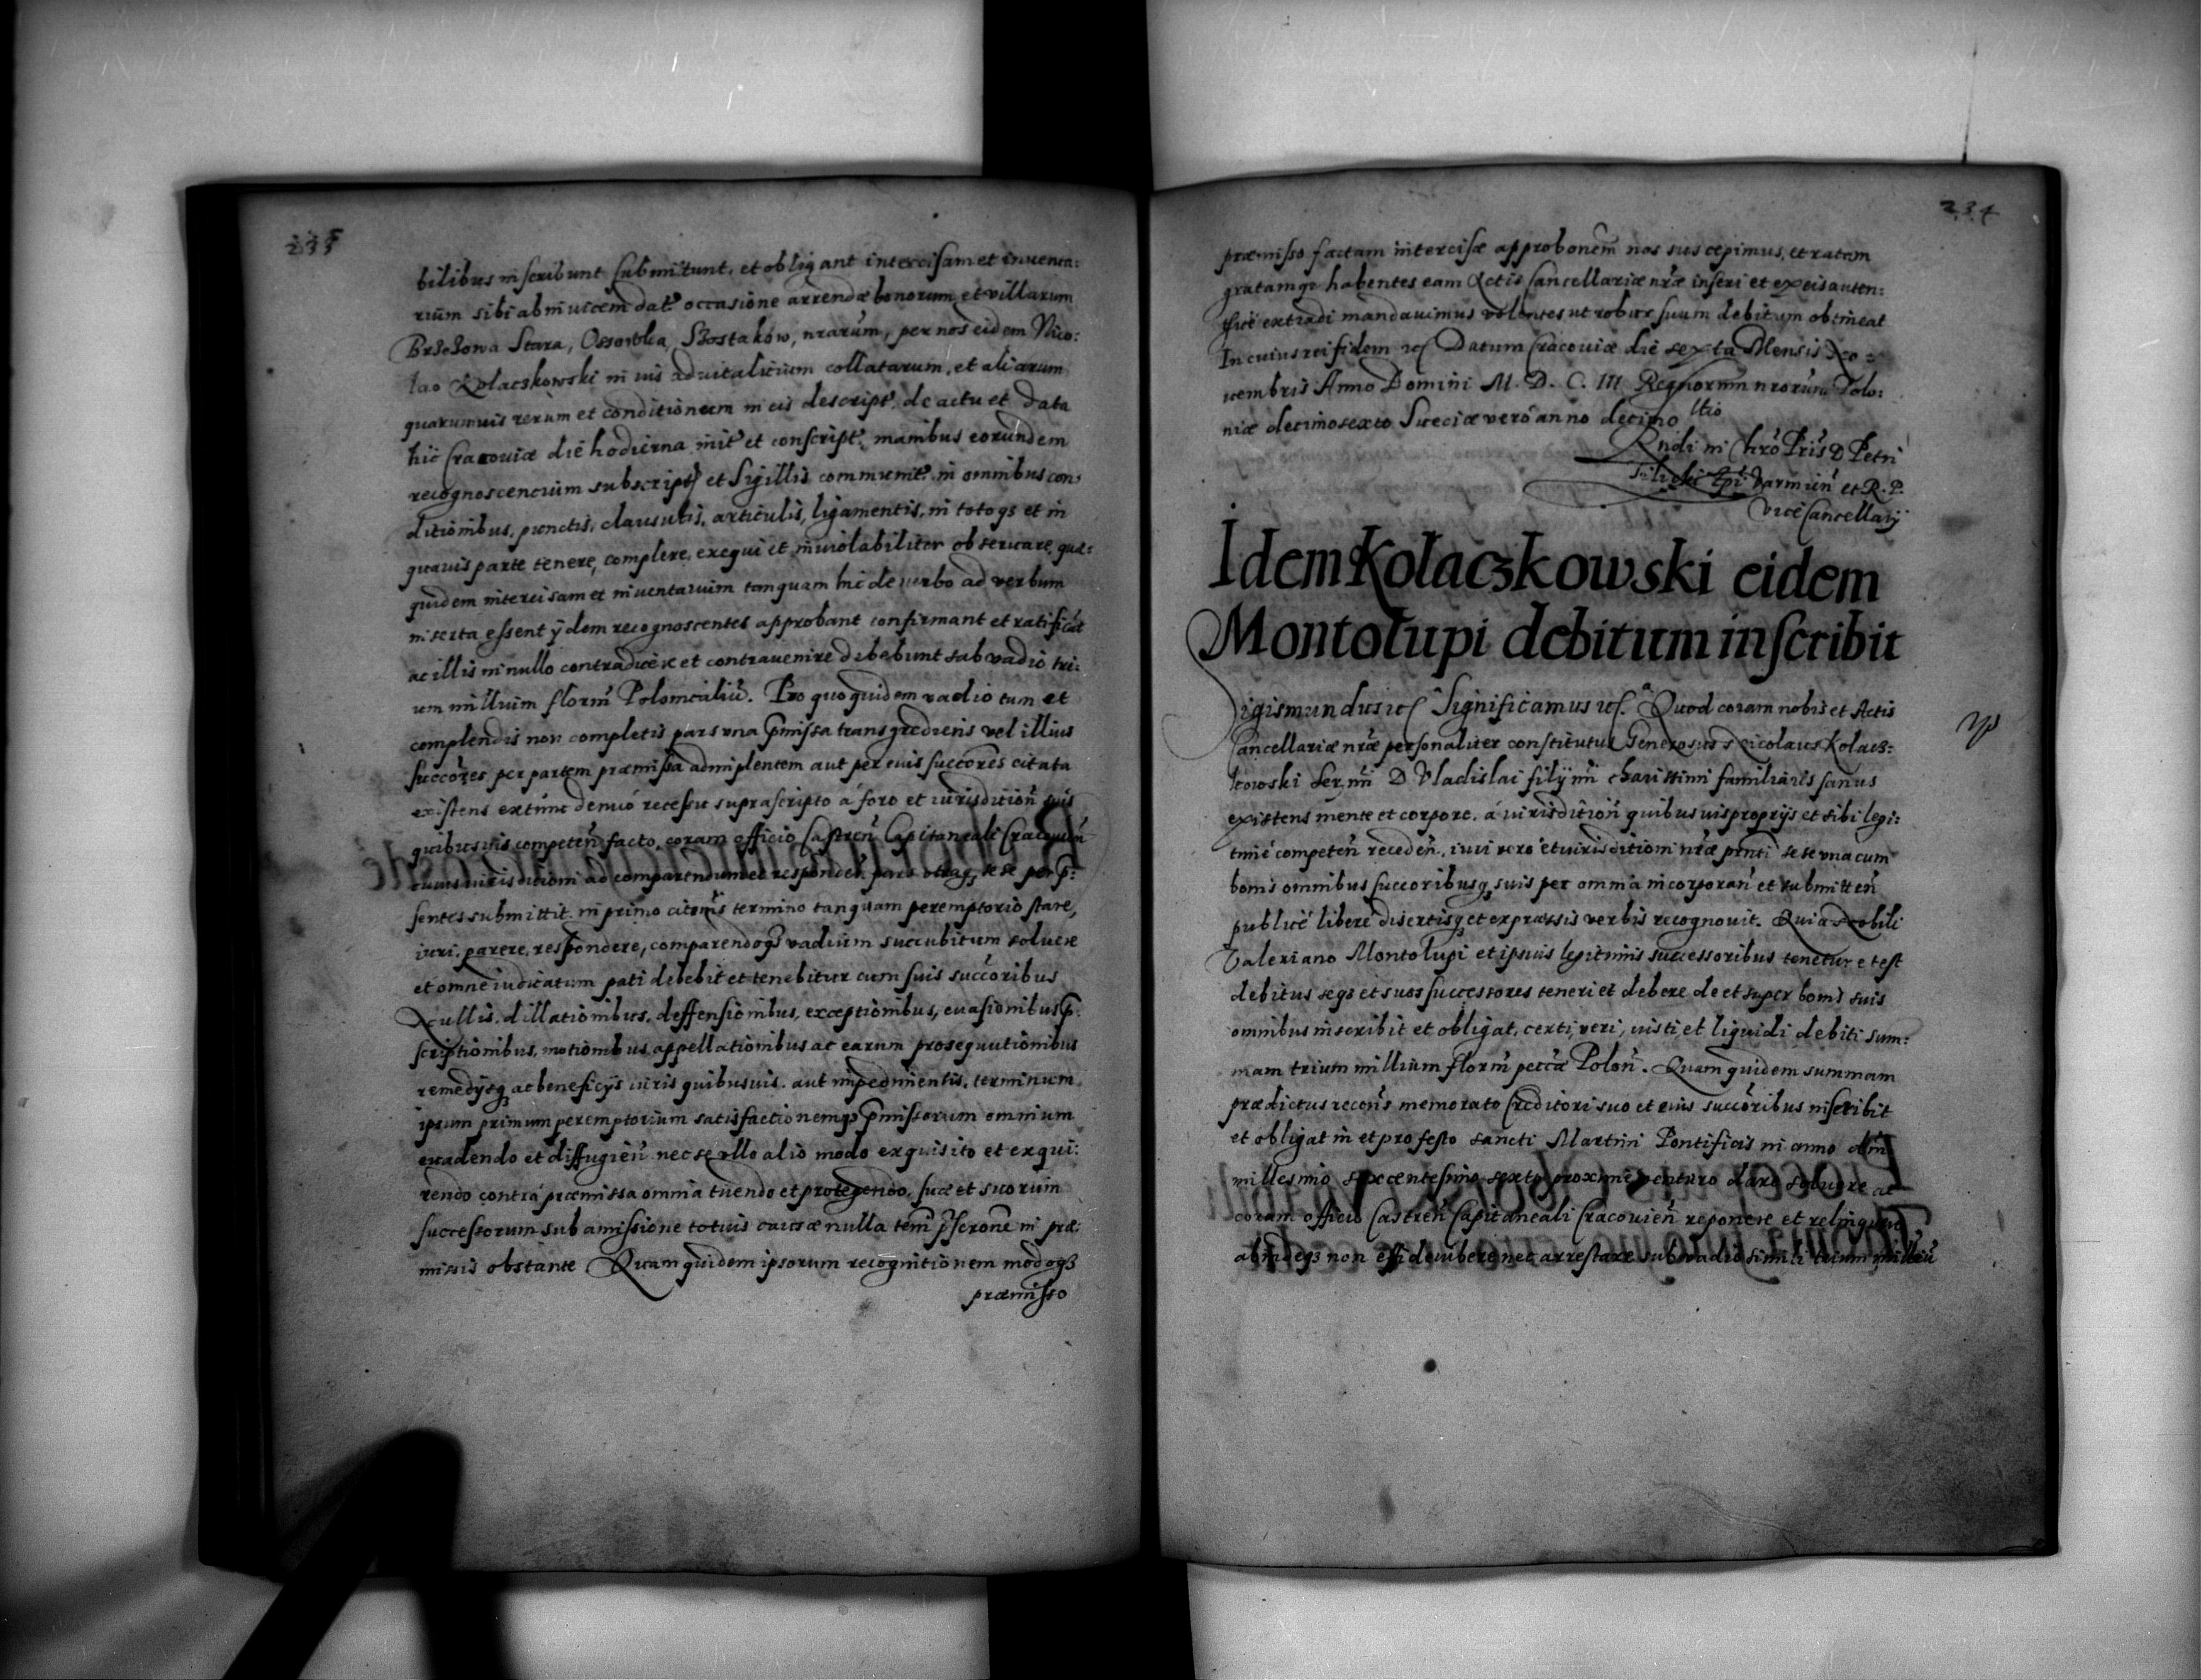 233
bilibus inscribunt submittunt, et obligant intercisam et inuenta:
rium sibi ab inuicem dat. occasione arrendæ bonorum et villarum
Brzezowa Stara, Ossowka, Szostakow, nrarum, per nos eidem Nico:
lao Kolaczkowski in uis aduitalicium collatarum, et aliarum
quarumuis rerum et conditionum in eis descript. de actu et data
hic Cracouiæ die hodierna init. et conscript. manibus eorundem
recognoscencium subscript. et Sigillis communit. in omnibus con:
ditionibus, punctis, clausulis, articulis, ligamentis, in totoq3 et in
quauis parte tenere, complere, exequi et inuiolabiliter obseruare, quæ:
quidem intercisam et inuentarium tanquam hic de uerbo ad verbum
inserta essent ÿdem recognoscentes approbant confirmant et ratificãt
ac illis in nullo contradicere et contrauenire debebunt sub vadio tri:
um millium florm̃ Polonicaliũ. Pro quo quidem vadio tum et
complendis non completis pars vna p̃missa transgrediens vel illius
succores per partem præmissa adimplentem aut per euis succores citata
existens extunc denuó recessu suprascripto á foro et iurisdition̄ suis
quibusuis competen̄ facto, coram officio Castren̄ Capitaneali Cracouien̄
cuius iurisditioni ad comparendum et responden̄. pars vtraq3 se se per p̃:
sentes submittit. in primo citonis termino tanquam peremptorio stare,
iuri. parere, respondere, comparendoq3 vadium succubitum soluere
et omne iudicatum pati debebit et tenebitur cum suis succoribus
Nullis. dillationibus. deffensionibus, exceptionibus, euasionibus p̃:
scriptionibus, motionibus appellationibus ac earum prosequutionibus
remedÿsq3 ac beneficÿs iuris quibusuis. aut impedimentis. terminum
ipsum primum peremptorium satisfactionemq3 p̃missorum omnium
euadendo et diffugien̄ nec se vllo alio modo exquisito et exqui:
rendo contrá præmissa omnia tuendo et protegendo, suæ et suorum
successorum sub amissione totius causæ nulla tem̃ p̃scrone in præ:
missis obstante Quam quidem ipsorum recognitionem modoq3
præmisso
234
præmisso factam intercisæ approbonem nos suscepimus, et ratam
gratamq3 habentes eam Actis Cancellariæ nræ inseri et ex eis auten:
tice extradi mandauimus volentes ut robur suum debitum obtineat
In cuius rei fidem etc Datum Cracouiæ die sexta Mensis No=
uembris Anno Domini M. D. C. III Regnorum nrorum Polo:
niæ decimosexto Sueciæ veró anno decimo
Rndi in Chro Pris D Petri
Tilicki Epi Varmien̄ et R. P.
Vice Cancellarÿ
Idem Kolaczkowski eidem
Montolupi debitum inscribit
Sigismundus etc Significamus etc. Quod coram nobis et Actis
Cancellariæ nræ personaliter constitutus Generosus Nicolaus Kolacz:
kowski Sermi D Vladislai filÿ nri charissimi familiaris sanus
existens mente et corpore. á iurisdition̄ quibusuis proprÿs et sibi legi:
time competen̄ receden̄. iuri vero et iurisditioni nræ prnti se se vna cum
bonis omnibus succoribusq3 suis per omnia incorporan̄ et submitten̄
publicé liberé disertisq3 et expressis verbis recognouit. Quia Nobili
Valeriano Montolupi et ipsius legitimis successoribus tenetur et est
debitus seq3 et suos successores teneri et debere de et super bonis suis
omnibus inscribit et obligat, certi, veri, iusti et liquidi debiti sum:
mam trium millium florm̃ peccæ Polon̄. Quam quidem summam
prædictus recons memorato Creditori suo et eius succoribus inscribit
et obligat in et pro festo sancti Martini Pontificis in anno dñi
millesimo sexcentesimo sexto proximé venturo dare soluere ac
coram officio Castren̄ Capitaneali Cracouien̄ reponere et relinquere
abindeq3 non effidemibere nec arrestare sub vadio simili trium milliũ